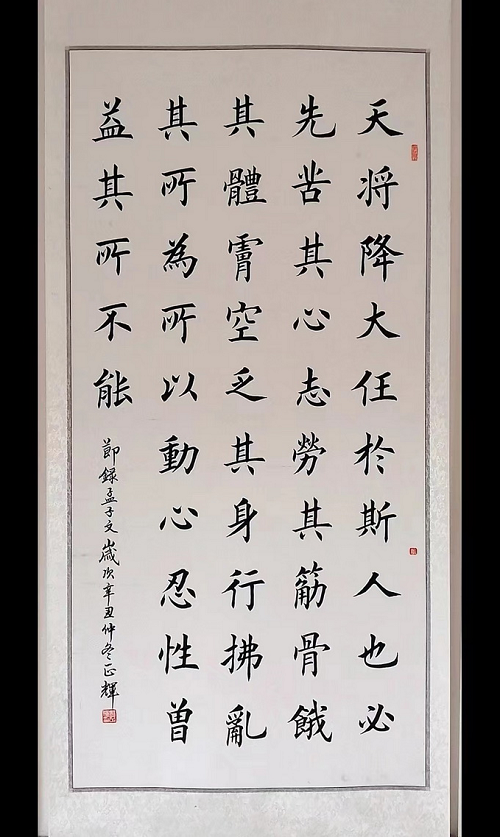 天将降大任於斯人也必
先苦其心志勞其筋骨餓
其體膚空乏其身行拂亂
其所為所以動心忍性曽
益其所不能
節録孟子文歲次辛丑仲冬正輝